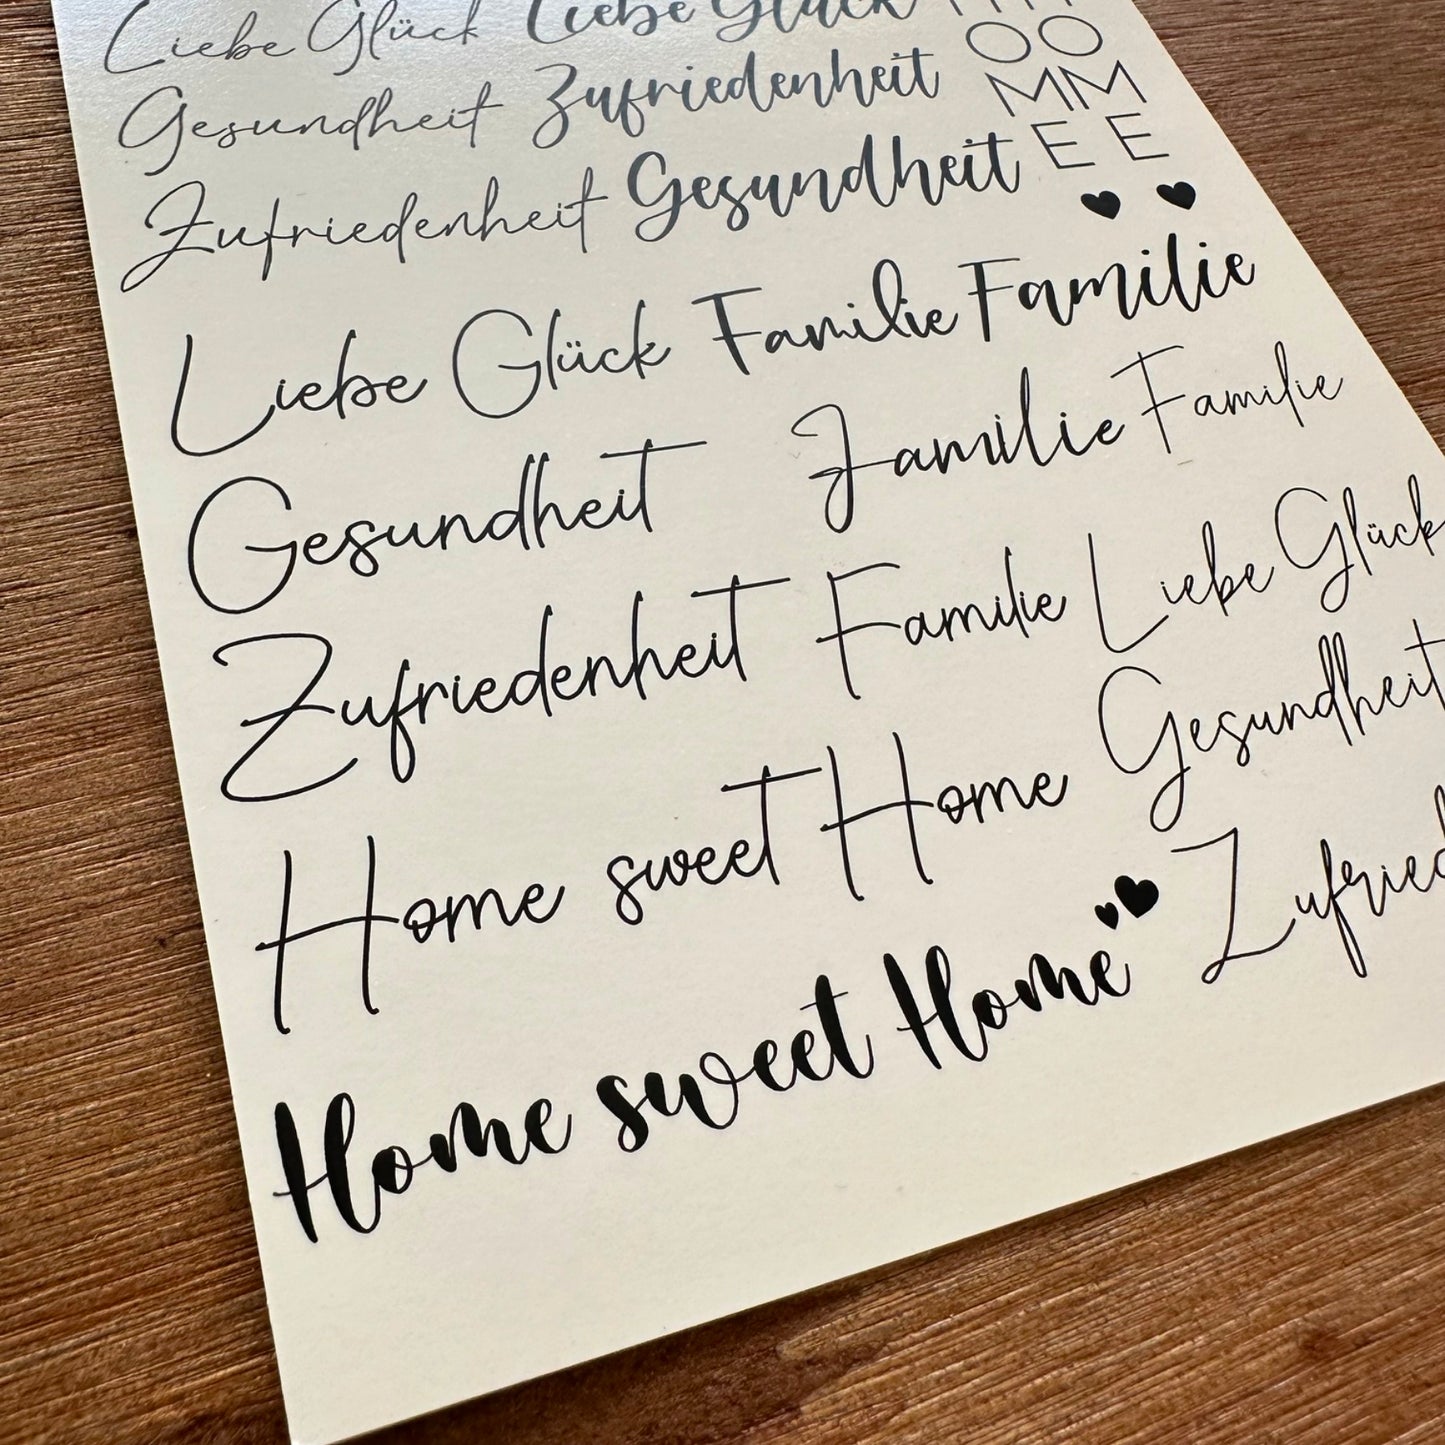 Liebe Glück Liebe Glück
Gesundheit Zufriedenheit
Zufriedenheit Gesundheit
HOME HOME
Liebe Glück Familie Familie
Gesundheit Familie Familie
Zufriedenheit Familie Liebe Glück
Home sweet Home Gesundheit
Home sweet Home